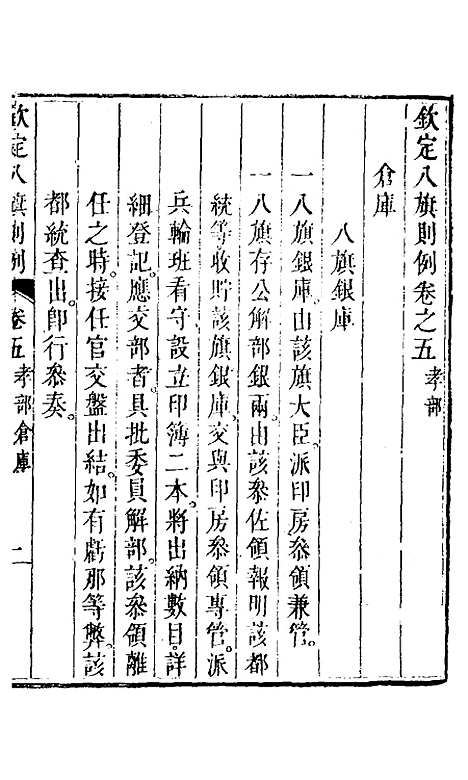 欽定八旗則例卷之五 孝部
倉庫
八旗銀庫
一八旗銀庫。由該旗大臣。派印房叅領兼管。
一八旗存公解部銀兩。由該叅佐領報明該都
統等收貯該旗銀庫。交與印房叅領專管。派
兵輪班看守。設立印簿二本。將出納數目。詳
細登記。應交部者。具批委員解部。該叅領離
任之時。接任官交盤出結。如有虧那等弊。該
都統查出。卽行叅奏。
欽定八旗則例 卷五 孝部 倉庫 二